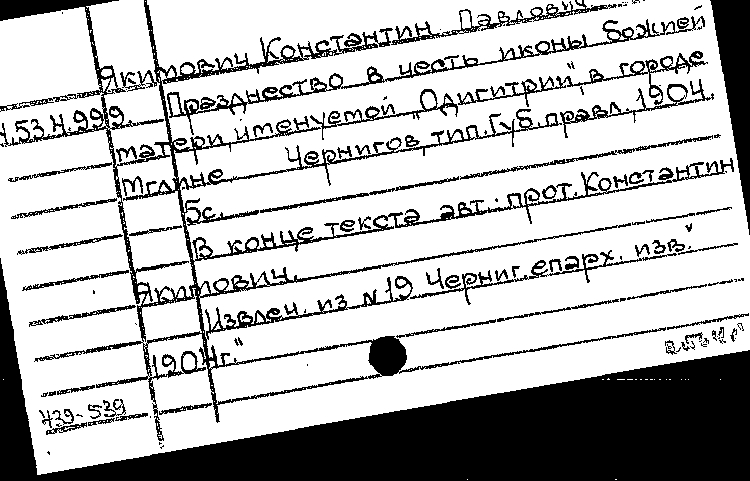 Якимович, Константин Павлович
Празднество в честь иконы Божией
4.534.999.
матери, именуемой „Одигитрии", в городе
Мглине. Чернигов, тип. Губ. правл., 1904.
5с.
В конце текста авт.: прот. Константин
Якимович.
Извлеч. из №19 Черниг. епарх. изв."
1904г."
439-539